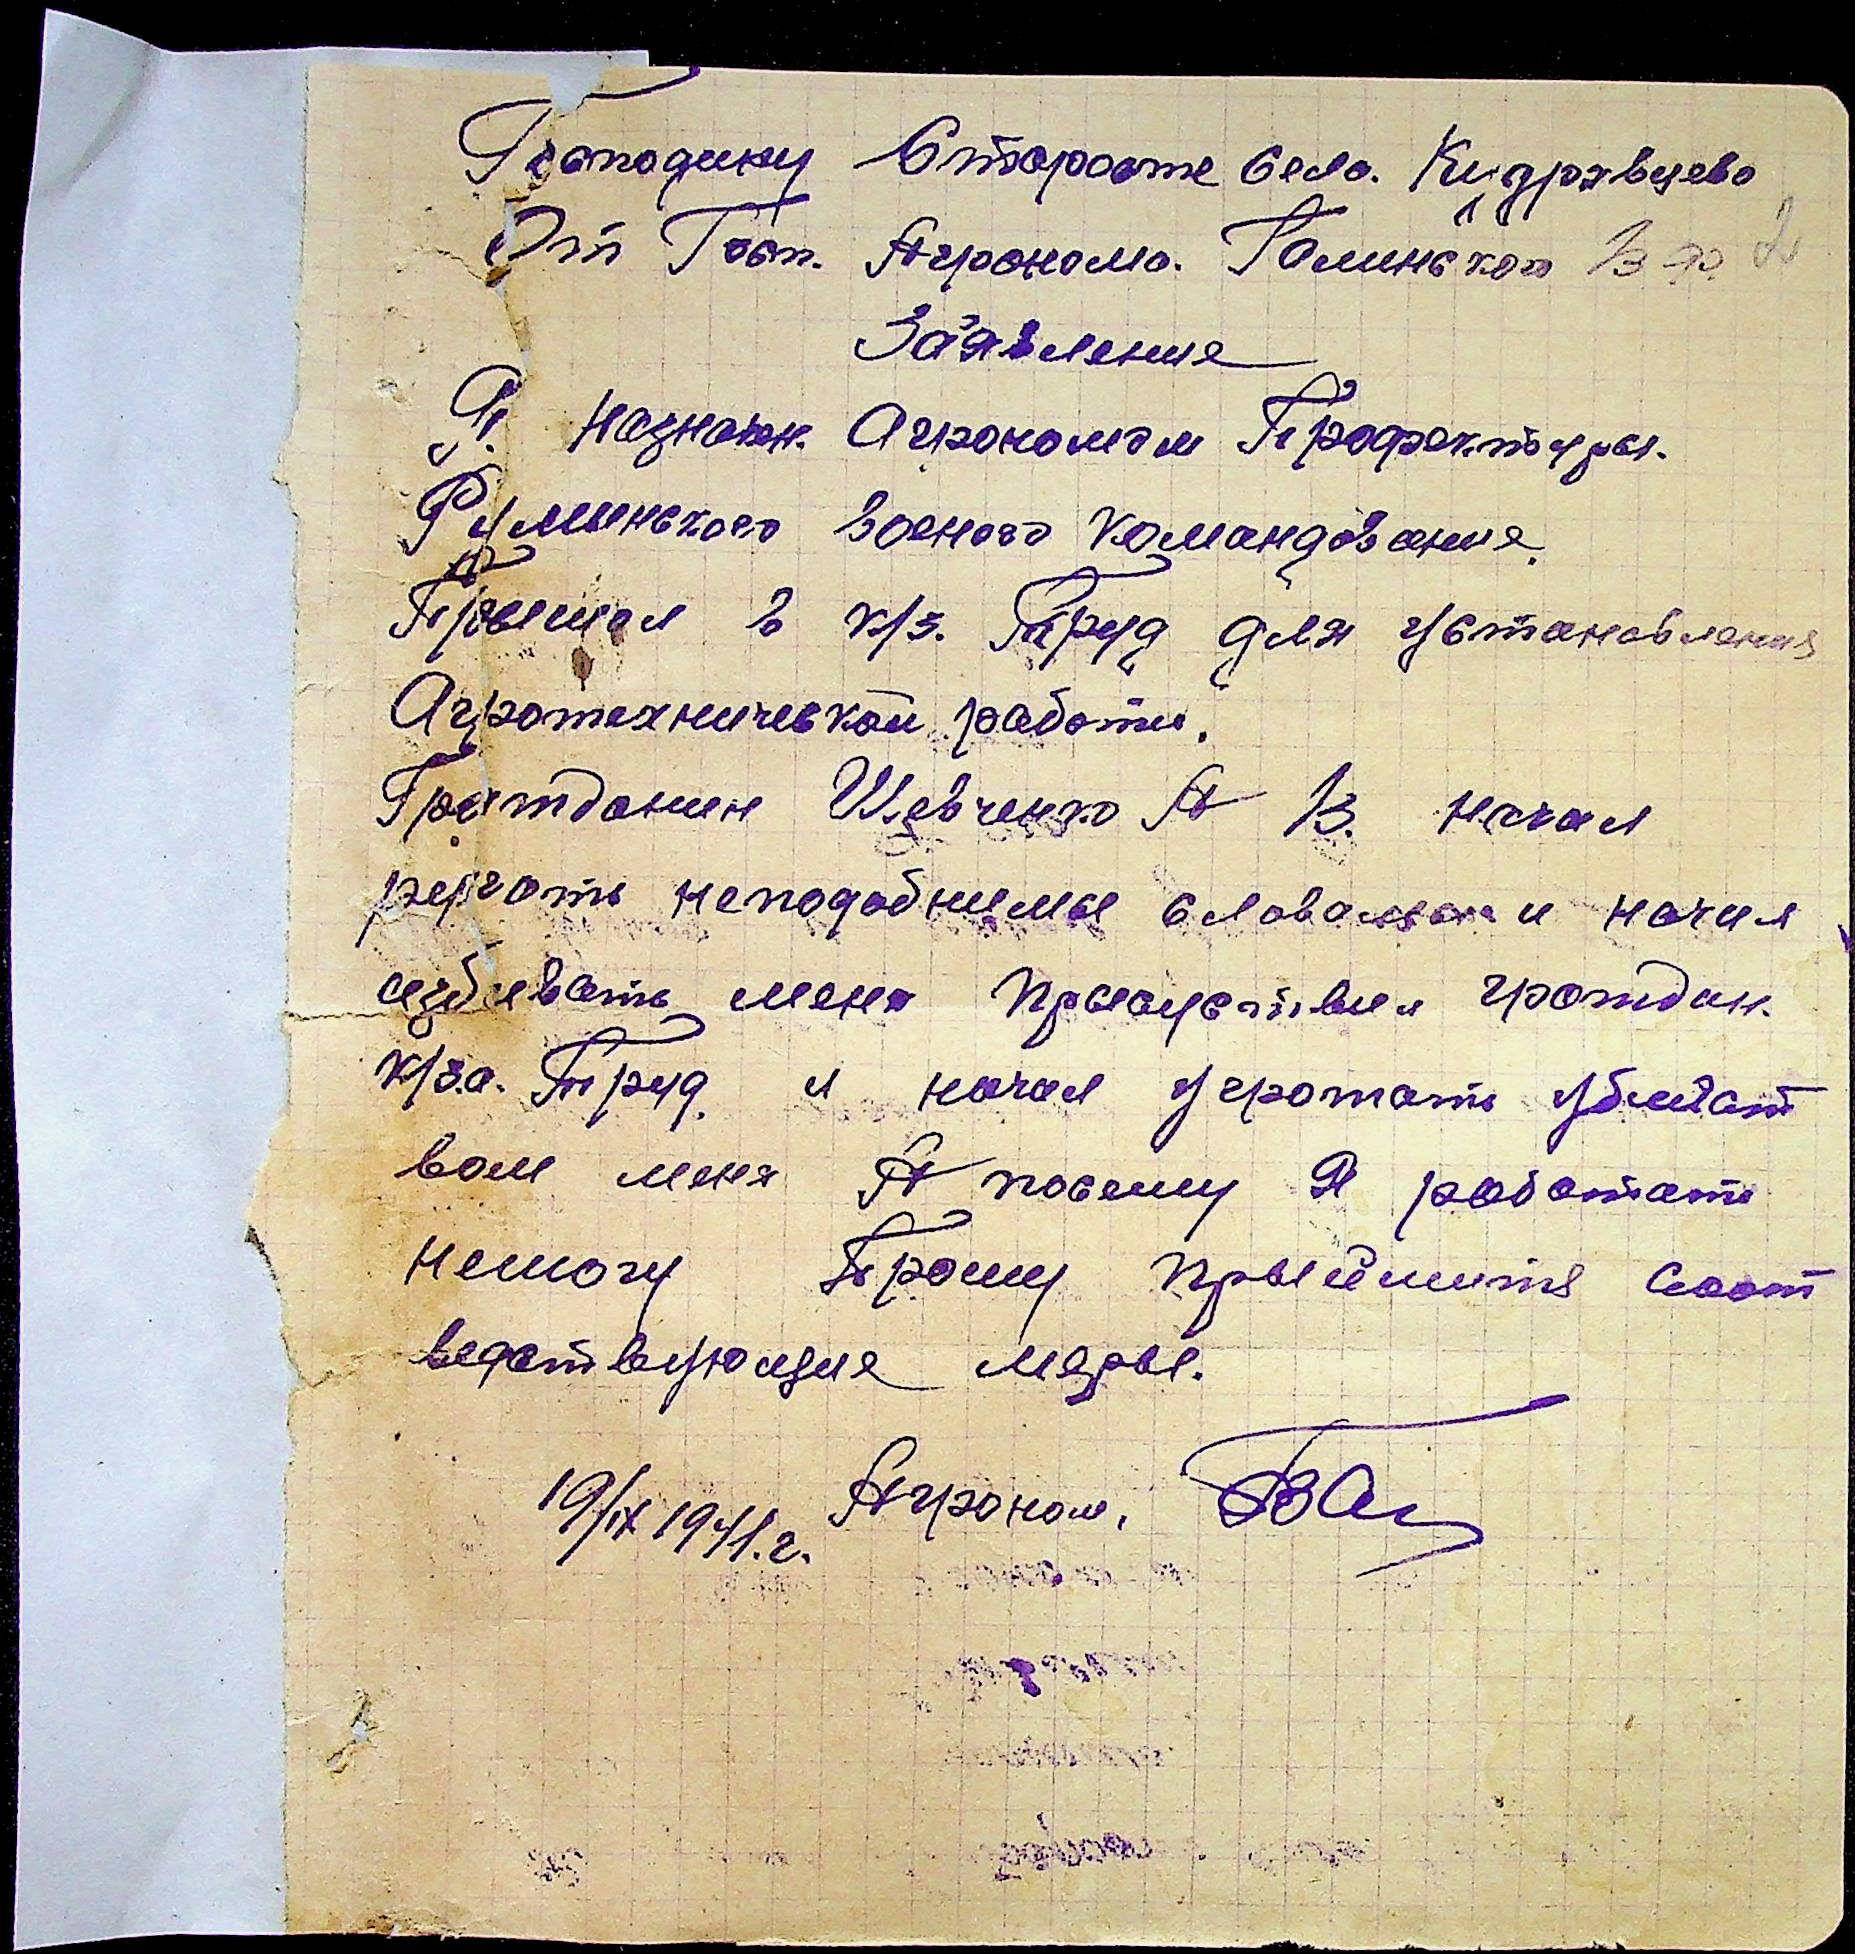 Господину Старосте села. Кудрявцево
От Госп. Агронома. Галинского В. Ф.
Заявление
Я. назначен. Агрономом Профектуры.
Румынского военого командования.
Прышол в к/з. Труд для установления
Агротехнической работы.
Гражданин Шевченко А В. начал
ругать неподобнимы словами и начал
избивать меня прысуствии граждан.
к/за. Труд. и начал угрожать убийст
вом меня А посему Я работать
немогу Прошу прыймите соот
ведствующие меры.
19/IX 1941.г. Агроном,